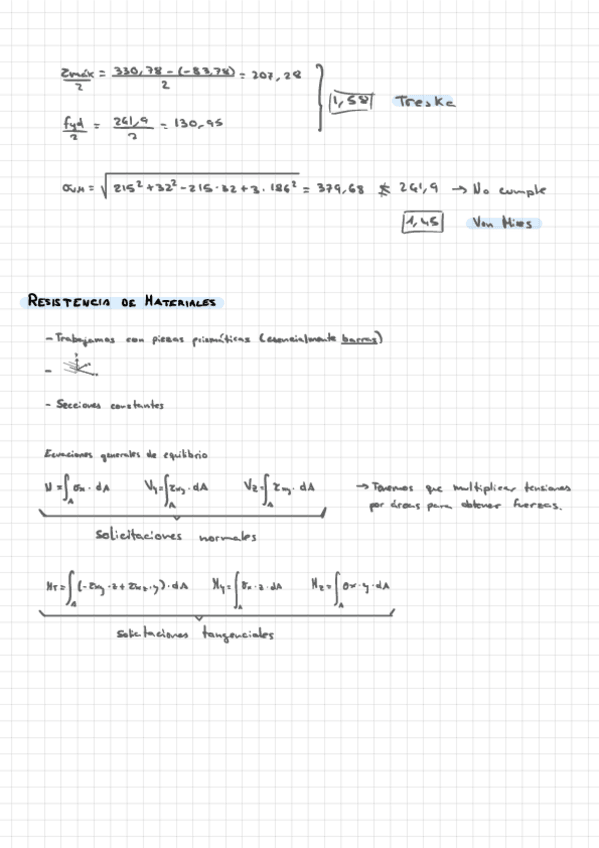 τmáx/2 = (330,78 - (-83,78))/2 = 207,28
1,58 Treska
fyd/2 = 261,9/2 = 130,95
σVM = √(215² + 32² - 215·32 + 3·186²) = 379,68 ≰ 261,9 → No cumple
1,45 Von Mises
RESISTENCIA DE MATERIALES
- Trabajamos con piezas prismáticas (esencialmente barras)
-
- Secciones constantes
Ecuaciones generales de equilibrio
N = ∫A σx · dA Vy = ∫A τxy · dA Vz = ∫A τxy · dA → Tenemos que multiplicar tensiones
por áreas para obtener fuerzas.
Solicitaciones normales
MT = ∫A (-τxy · z + τxz · y) · dA My = ∫A σx · z · dA Mz = ∫A σx · y · dA
Solicitaciones tangenciales